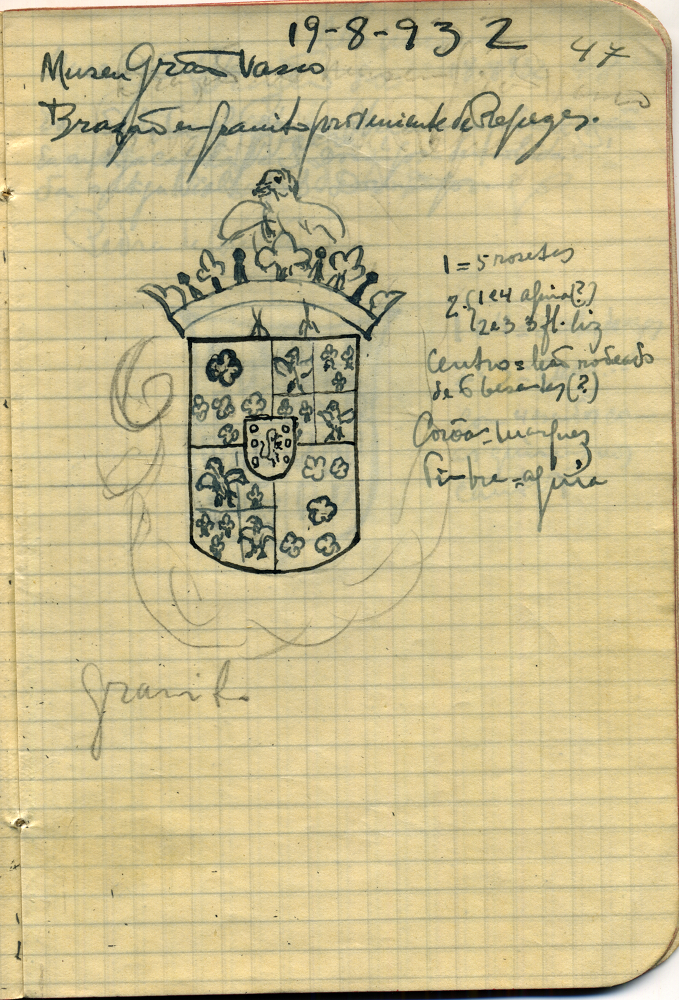 19-8-932
47
Museu Grão Vasco
Brazão em granito proveniente de Repeges.
1 = 5 rosetas
2. { 1 e 4 aguia (?)
2 e 3 3 fl. liz
Centro = leão rodeado
de 6 besantes (?)
Corôa = marquez
Timbre = aguia
granito